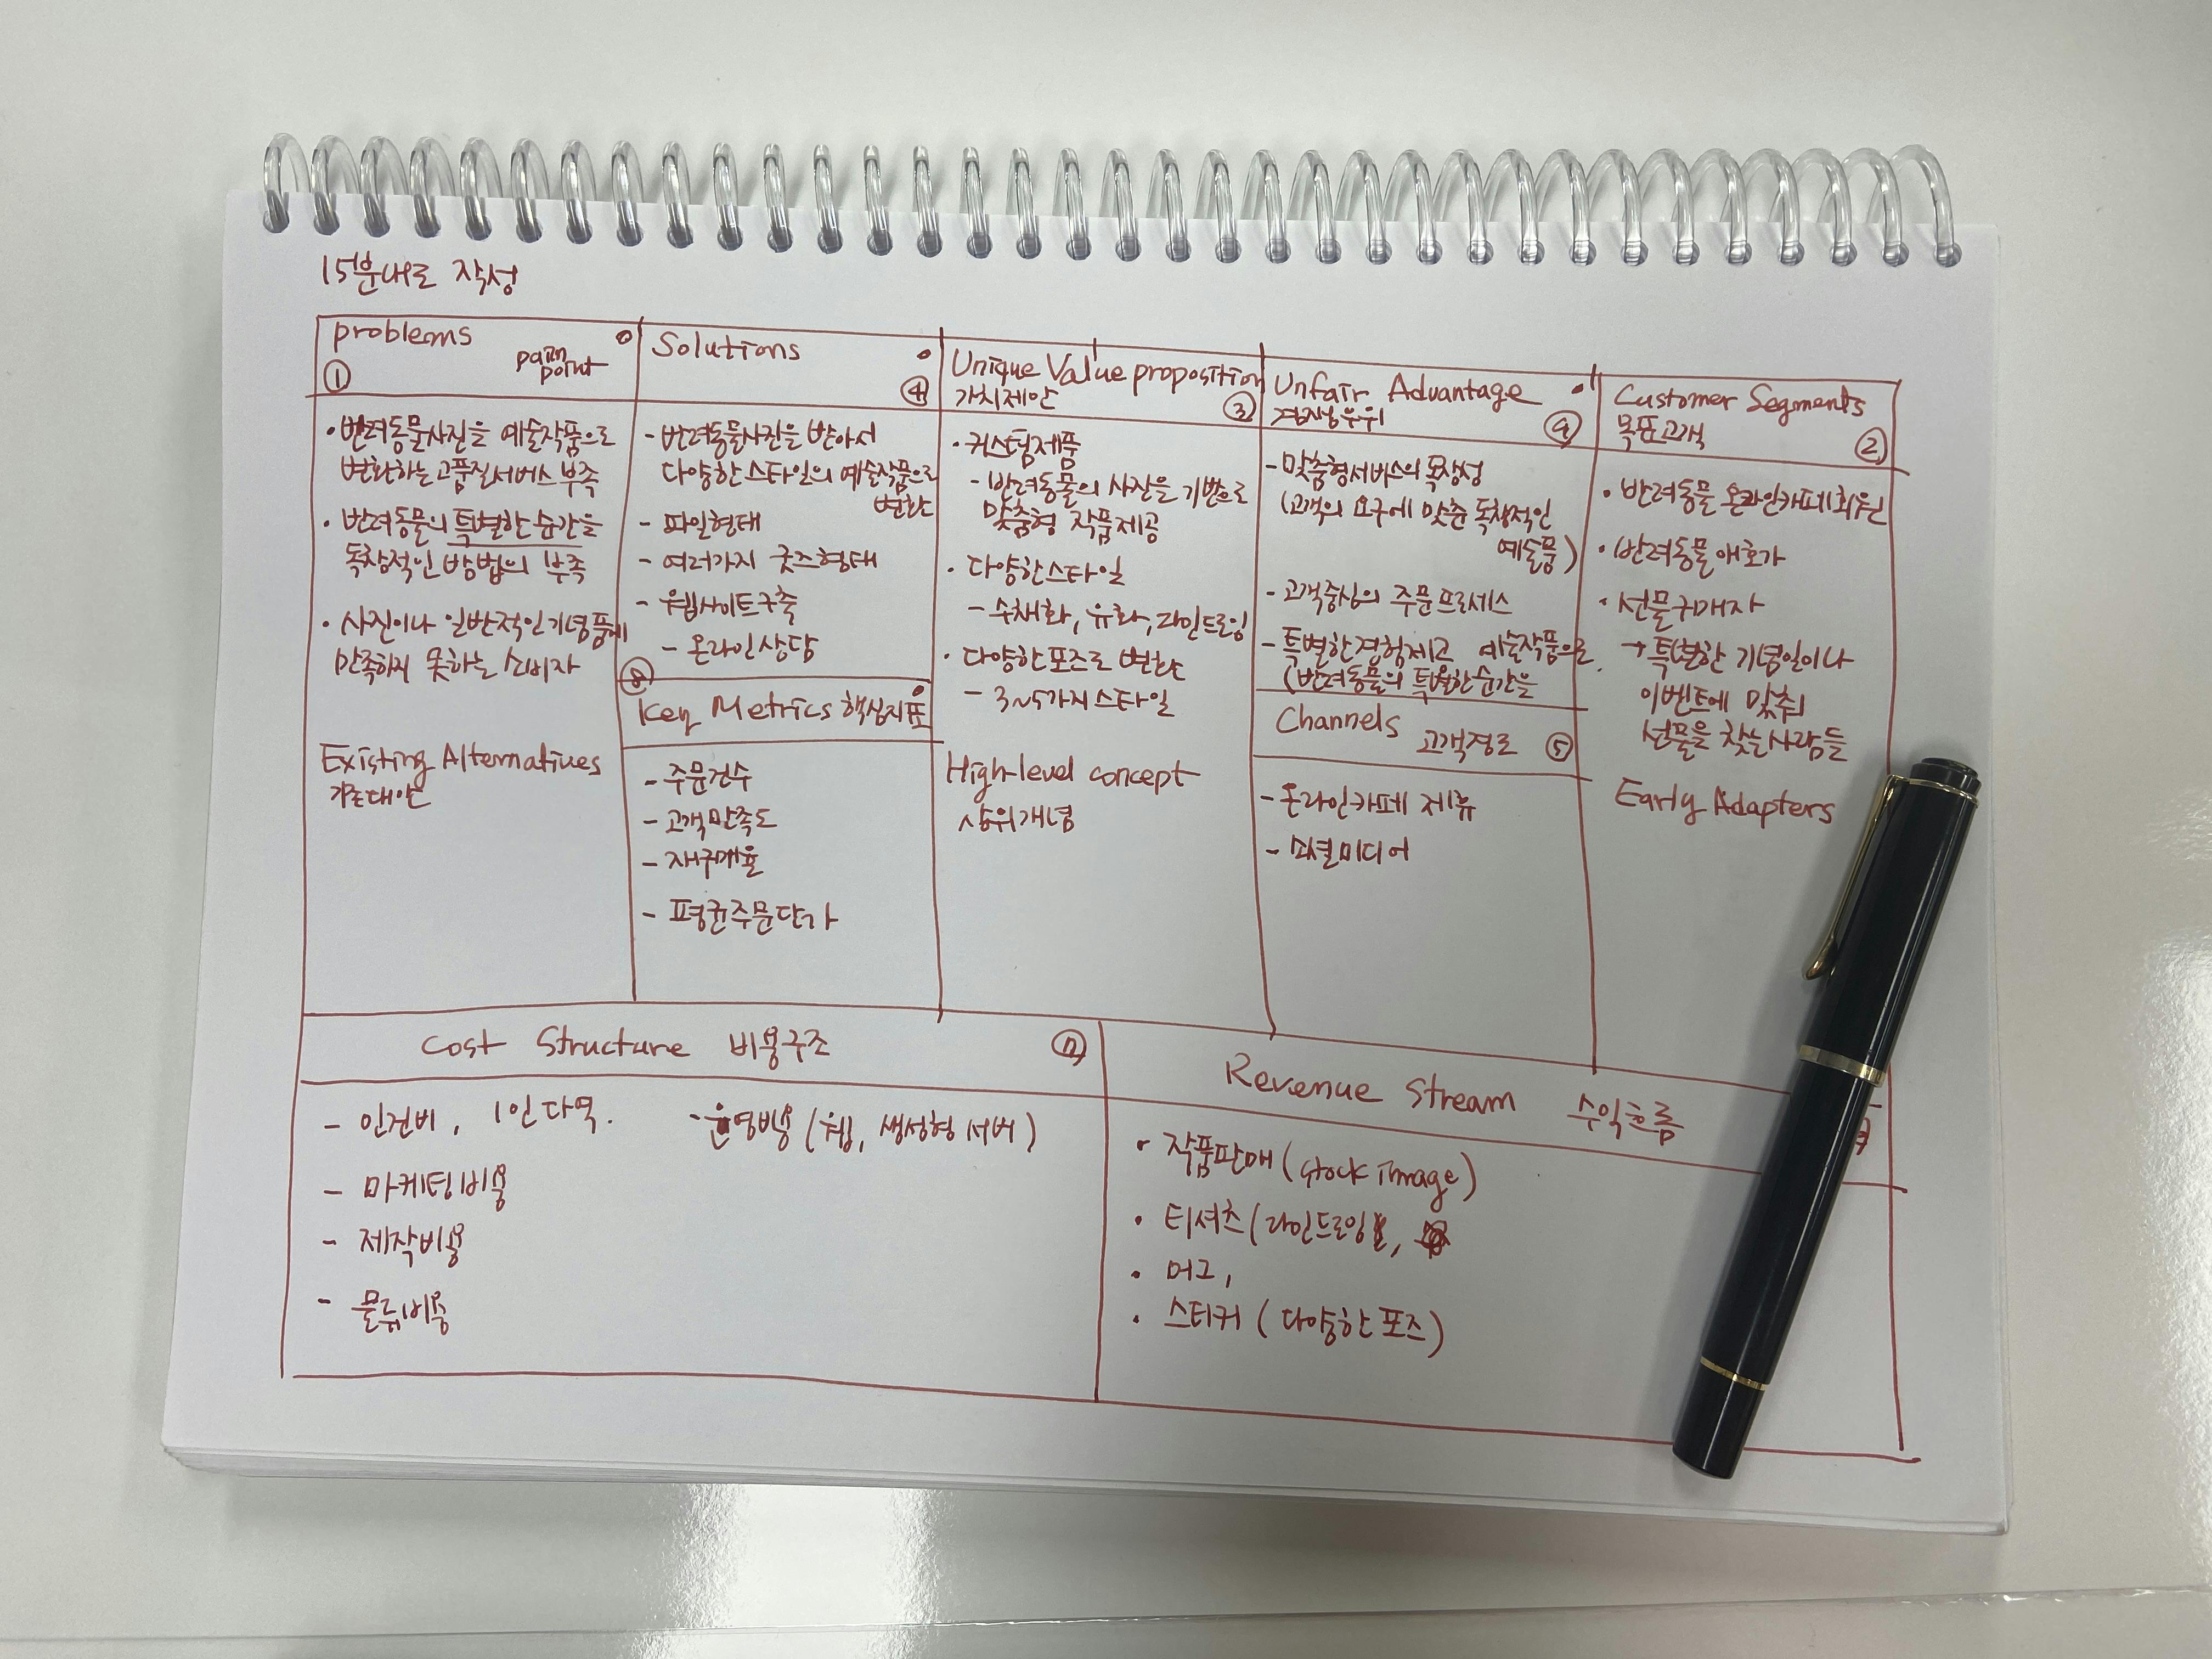 15분내로 작성
problems
pain
point
①
• 반려동물사진을 예술작품으로
변환하는 고품질서버스 부족
• 반려동물의 특별한 순간을
독창적인 방법의 부족
• 사진이나 일반적인 기념품에
만족하지 못하는 소비자
Existing Alternatives
기존대안
Solutions
④
- 반려동물사진을 받아서
다양한 스타일의 예술작품으로
변환
- 파일형태
- 여러가지 굿즈형태
- 웹사이트구축
- 온라인상담
⑧
Key Metrics 핵심지표
- 주문건수
- 고객만족도
- 재구매율
- 평균주문단가
Unique Value proposition
가치제안
③
• 커스텀제품
- 반려동물의 사진을 기반으로
맞춤형 작품제공
• 다양한스타일
- 수채화, 유화, 라인드로잉
• 다양한포즈로 변환
- 3~5가지스타일
High-level concept
상위개념
Unfair Advantage
경쟁우위
⑨
- 맞춤형서비스의 독창성
(고객의 요구에 맞춘 독창적인
예술품)
- 고객중심의 주문프로세스
- 특별한경험제고 예술작품으로.
(반려동물의 특별한순간을
Channels 고객경로 ⑤
- 온라인카페 제휴
- 소셜미디어
Customer Segments
목표고객
②
• 반려동물 온라인카페회원
• 반려동물 애호가
• 선물구매자
→ 특별한 기념일이나
이벤트에 맞춰
선물을 찾는사람들
Early Adapters
Cost Structure 비용구조
⑦
- 인건비, 1인다역.
- 운영비용 (웹, 생성형 서버)
- 마케팅비용
- 제작비용
- 물류비용
Revenue Stream 수익흐름
• 작품판매 (stock image)
• 티셔츠 (라인드로잉,
• 머그,
• 스티커 (다양한 포즈)